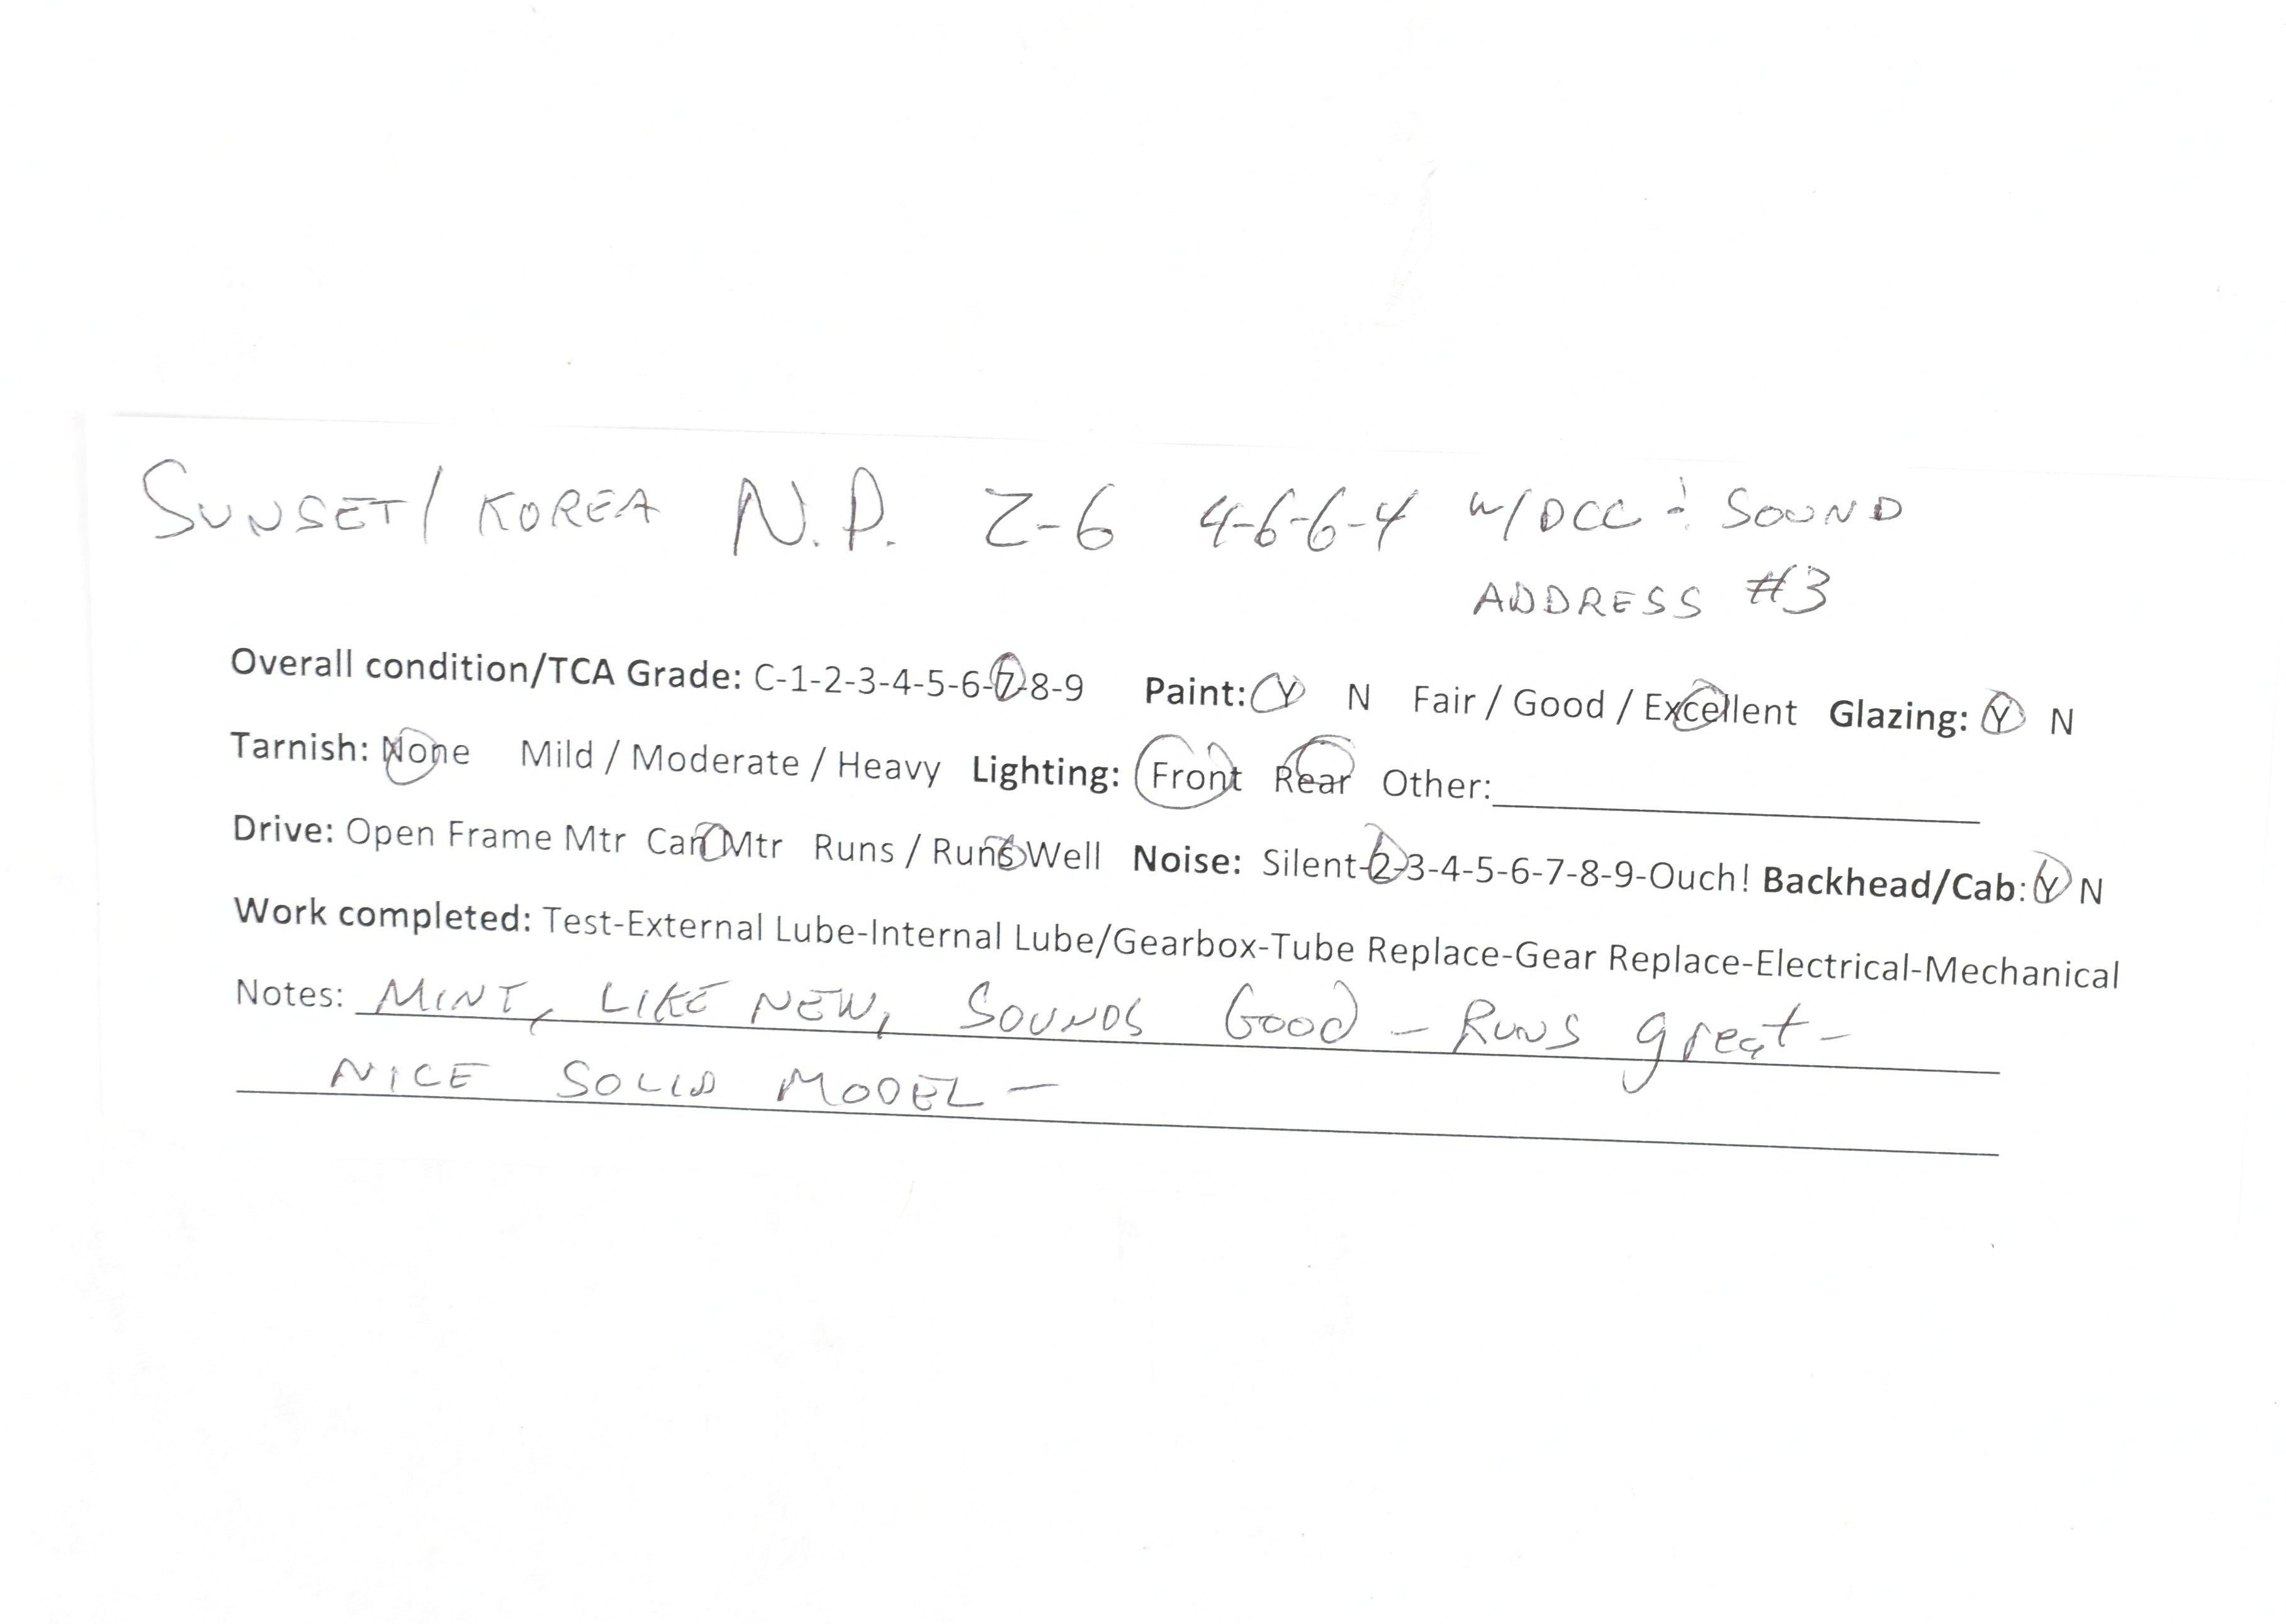 SUNSET/ KOREA N.P. Z-6 4-6-6-4 w/DCC & SOUND
ADDRESS #3
Overall condition/TCA Grade: C-1-2-3-4-5-6-7-8-9 Paint: Y N Fair / Good / Excellent Glazing: Y N
Tarnish: None Mild / Moderate / Heavy Lighting: Front Rear Other:
Drive: Open Frame Mtr Can Mtr Runs / Runs Well Noise: Silent-2-3-4-5-6-7-8-9-Ouch! Backhead/Cab: Y N
Work completed: Test-External Lube-Internal Lube/Gearbox-Tube Replace-Gear Replace-Electrical-Mechanical
Notes: MINT, LIKE NEW, SOUNDS GOOD – RUNS great –
NICE SOLID MODEL –